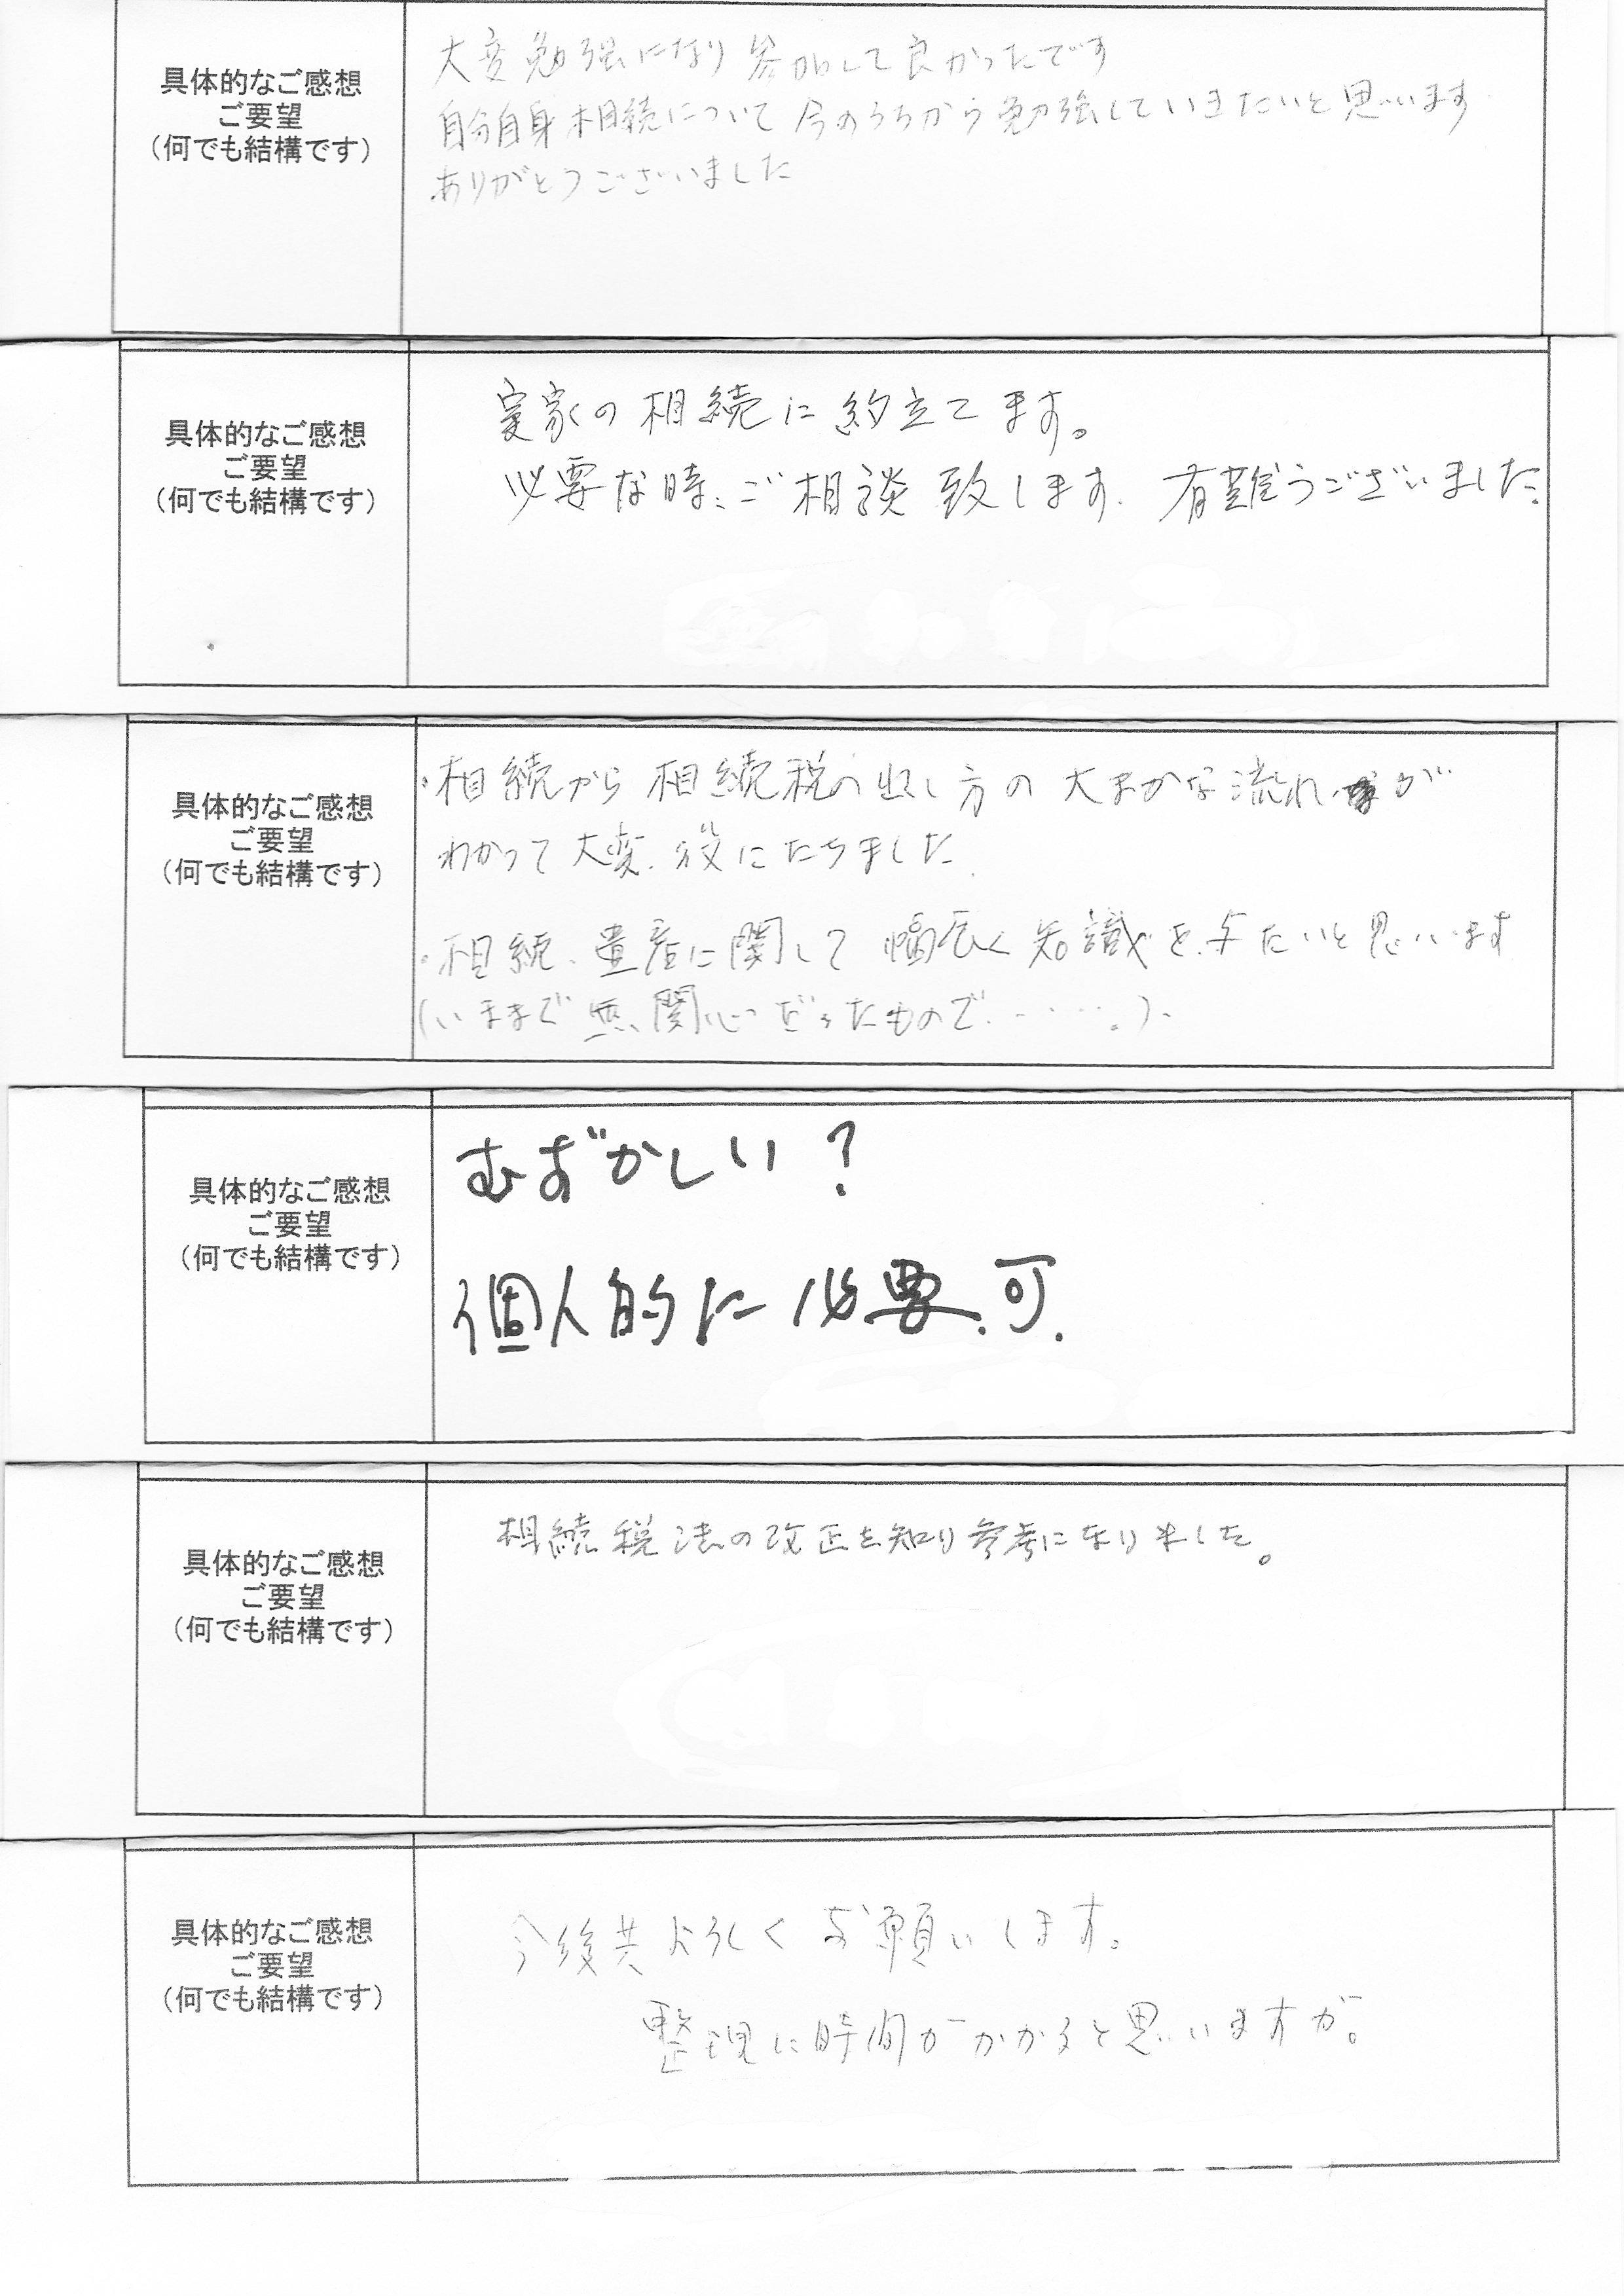 具体的なご感想
ご要望
（何でも結構です）
大変勉強になり参加して良かったです
自分自身相続について今のうちから勉強していきたいと思います
ありがとうございました
具体的なご感想
ご要望
（何でも結構です）
実家の相続に約立てます。
必要な時、ご相談致します。有難うございました。
具体的なご感想
ご要望
（何でも結構です）
・相続から相続税の出し方の大まかな流れが
わかって大変、役にたちました。
・相続、遺産に関して幅広く知識を得たいと思います
（いままで無関心だったもので、……。）
具体的なご感想
ご要望
（何でも結構です）
むずかしい？
個人的に必要.可.
具体的なご感想
ご要望
（何でも結構です）
相続税法の改正を知り参考になりました。
具体的なご感想
ご要望
（何でも結構です）
今後共よろしくお願いします。
整理に時間がかかると思いますが。